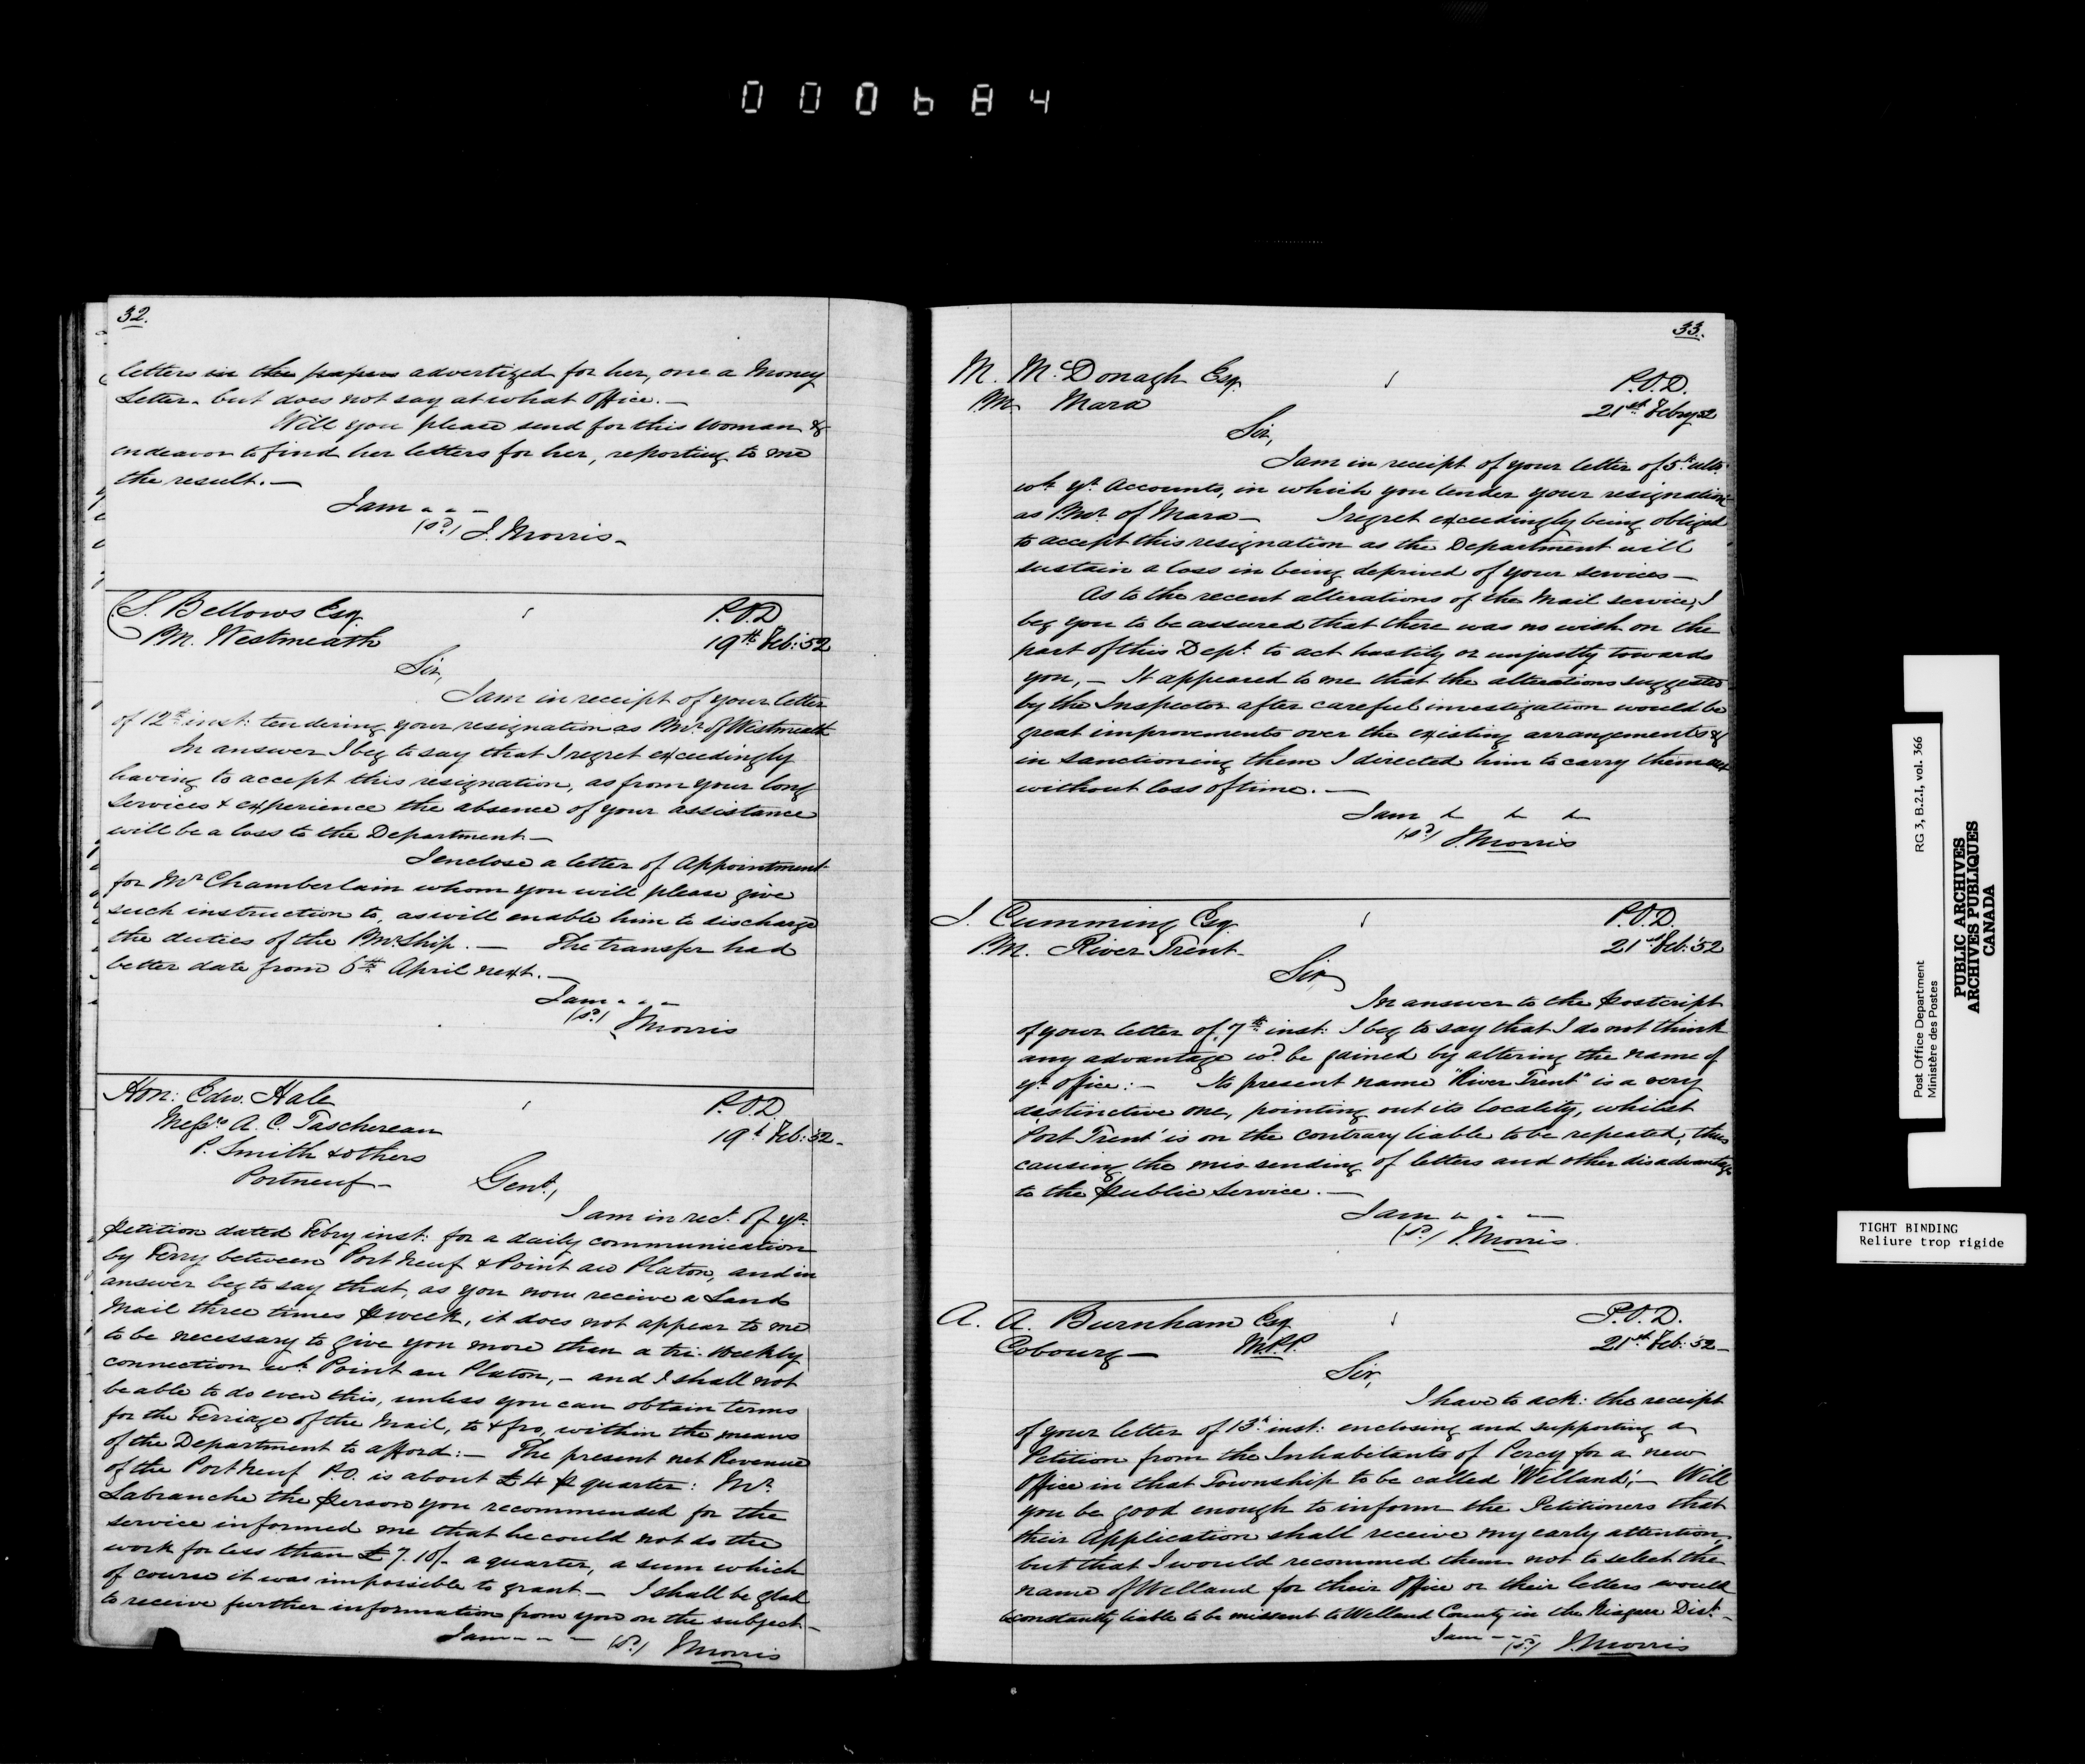 000684
32.
letters in the papers advertized for her, one a Money
Letter. but does not say at what Office. —
Will you please send for this Woman &
endeavor to find her letters for her, reporting to me
the result. —
I am - - -
(sd) J. Morris -
S. Bellows Esq.
P.M. Westmeath
P.O.D
19th Feb: 52
Sir,
I am in receipt of your letter
of 12th inst: tendering your resignation as P.Mr. of Westmeath
In answer I beg to say that I regret exceedingly
having to accept this resignation, as from your long
services & experience the absence of your assistance
will be a loss to the Department —
I enclose a letter of Appointment
for Mr Chamberlain whom you will please give
such instruction to, as will enable him to discharge
the duties of the P.Mr.Ship. — The transfer had
better date from 6th April next. —
I am - - -
(sd) J Morris
Hon: Edw. Hale
Messrs A. C. Taschereau
P. Smith & others
Portneuf -
P.O.D.
19th Feb: 52 -
Gent,
I am in rect. of yr.
Petition dated Febry inst: for a daily communication
by Ferry between Port Neuf & Point au Platon, and in
answer beg to say that, as you now receive a Land
Mail three times P week, it does not appear to me
to be necessary to give you more than a tri-weekly
connection wh. Point au Platon, - and I shall not
be able to do even this, unless you can obtain terms
for the Ferriage of the Mail, to & fro, within the means
of the Department to afford: — The present net Revenue
of the Port Neuf P.O. is about £4 P quarter: Mr
Labranche the person you recommended for the
service informed me that he could not do the
work for less than £7.10/- a quarter, a sum which
of course it was impossible to grant - I shall be glad
to receive further information from you on the subject -
I am - - - (sd) J Morris
33.
M. McDonagh Esq.
P.M. Mara
P.O.D.
21st Febry 52
Sir,
I am in receipt of your letter of 5th ulto.
wh. yr. Accounts, in which you tender your resignation
as P.Mr. of Mara - I regret exceedingly being obliged
to accept this resignation as the Department will
sustain a loss in being deprived of your services —
As to the recent alterations of the Mail service, I
beg you to be assured that there was no wish on the
part of this Dept. to act hastily or unjustly towards
you, - It appeared to me that the alterations suggested
by the Inspector after careful investigation would be
great improvements over the existing arrangements &
in sanctioning them I directed him to carry them out
without loss of time. —
I am - - -
(sd) J. Morris
J. Cumming Esq.
P.M. River Trent -
P.O.D.
21st Feb: 52
Sir
In answer to the Postcript
of your letter of 7th inst: I beg to say that I do not think
any advantage wd. be gained by altering the name of
yr. office: - Its present name "River Trent" is a very
distinctive one, pointing out its locality, whilst
'Port Trent' is on the contrary liable to be repeated, thus
causing the mis sending of letters and other disadvantage
to the Public Service. —
I am - - -
(sd) J. Morris.
A. A. Burnham Esq
Cobourg — M.P.P.
P.O.D.
21st Feb: 52 -
Sir,
I have to ack: the receipt
of your letter of 13th inst: enclosing and supporting a
Petition from the Inhabitants of Percy for a new
Office in that Township to be called 'Welland', - Will
you be good enough to inform the Petitioners that
their Application shall receive my early attention,
but that I would recommed them not to select the
name of Welland for their Office or their letters would
be constantly liable to be missent to Welland County in the Niagara Dist. -
I am - - - (sd) J. Morris
Post Office Department RG 3, B.2.I, vol. 366
Ministère des Postes
PUBLIC ARCHIVES
ARCHIVES PUBLIQUES
CANADA
TIGHT BINDING
Reliure trop rigide